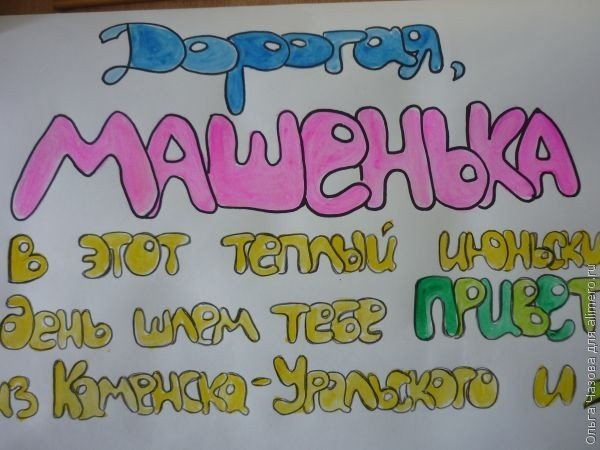 Дорогая,
МАШЕНЬКА
В ЭТОТ ТЕПЛЫЙ ИЮНЬСКИ
ДЕНЬ ШЛЕМ ТЕБЕ ПРИВЕТ
ИЗ КАМЕНСКА-УРАЛЬСКОГО И
Ольга Чазова для alimero.ru